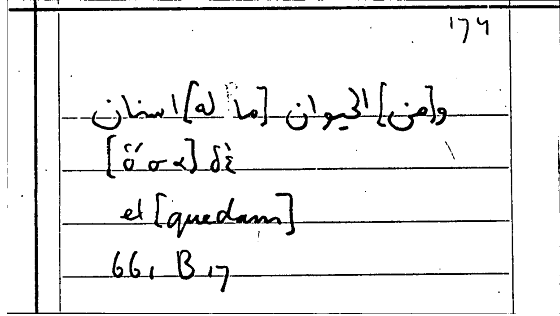 174
و[من] الحيوان [ما له] اسنان
[ὅσα] δὲ
et [quedam]
661 B 17